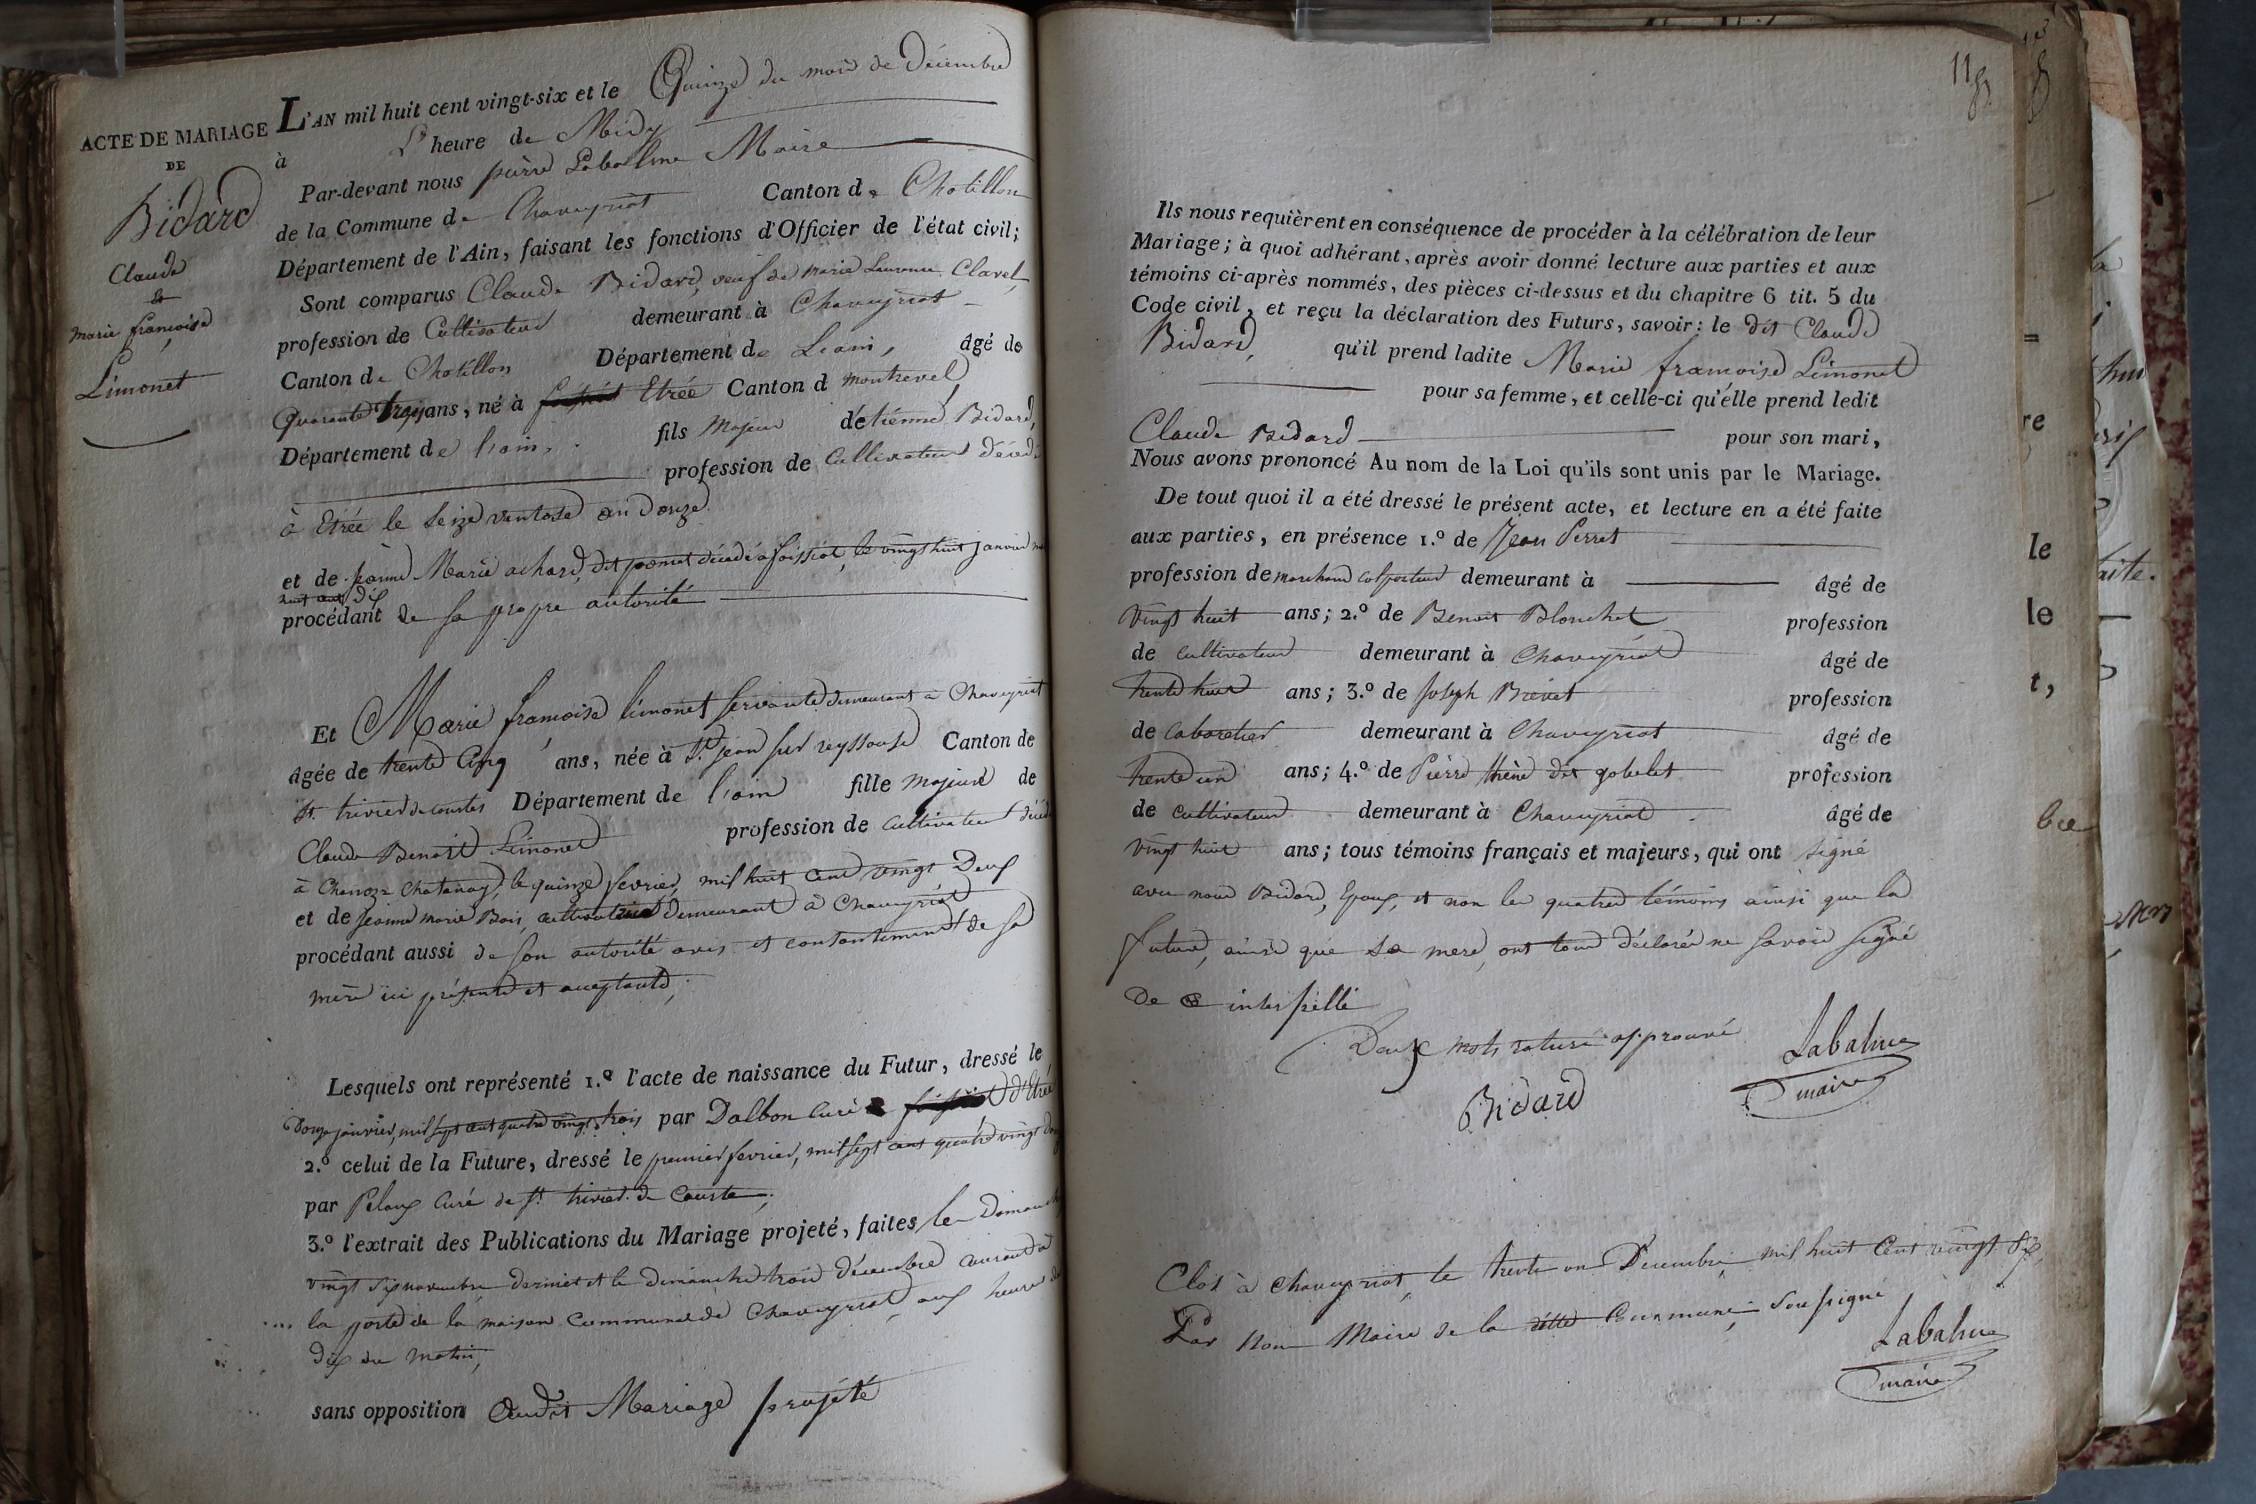 ACTE DE MARIAGE
DE
Bidard
Claude
&
marie françoise
Limonet
L'AN mil huit cent vingt-six et le Quinze du mois de Décembre
à L'heure de Midy
Par-devant nous pierre Labalme Maire
de la Commune de Chaveyriat Canton de Chatillon
Département de l'Ain, faisant les fonctions d'Officier de l'état civil;
Sont comparus Claude Bidard, veuf de marie Laurence Clavel,
profession de Cultivateur demeurant à Chaveyriat
Canton de Chatillon Département de L'ain, âgé de
Quarante trois ans, né à Etrée Canton d montrevel
Département de l'ain, fils Majeur d'étienne Bidard,
profession de Cultivateur décédé
à Etrée le seize ventose an Douze
et de jeanne Marie achard, dit pomet décédé à foissiat, le vingt huit janvier mil
huit cent dix
procédant de sa propre autorité
Et Marie françoise limonet servante demeurant à Chaveyriat
âgée de trente Cinq ans, née à St. jean sur reyssouse Canton de
St. trivier de courtes Département de l'ain fille majeure de
Claude Benoit Limonet profession de Cultivateur décédé
à Chanoz Chatenay, le quinze fevrier, mil huit Cent vingt Deux
et de jeanne marie Bois, cultivatrice demeurant à Chaveyriat
procédant aussi de son autorité avis et consentement de sa
mère ici présente et acceptante;
Lesquels ont représenté 1.º l'acte de naissance du Futur, dressé le
Douze janvier, mil sept cent quatre vingt trois par Dalbon Curé d'Etrée
2.º celui de la Future, dressé le premier fevrier, mil sept cent quatre vingt
par Peloux Curé de St. trivier de Courte;
3.º l'extrait des Publications du Mariage projeté, faites le Dimanche
vingt six novembre dernier et le dimanche trois décembre courant à
la porte de la maison Commune de Chaveyriat, aux heures de
dix du matin,
sans opposition audit Mariage projété
118
Ils nous requièrent en conséquence de procéder à la célébration de leur
Mariage; à quoi adhérant, après avoir donné lecture aux parties et aux
témoins ci-après nommés, des pièces ci-dessus et du chapitre 6 tit. 5 du
Code civil, et reçu la déclaration des Futurs, savoir: le dit Claude
Bidard, qu'il prend ladite Marie françoise Limonet
pour sa femme, et celle-ci qu'elle prend ledit
Claude Bidard pour son mari,
Nous avons prononcé Au nom de la Loi qu'ils sont unis par le Mariage.
De tout quoi il a été dressé le présent acte, et lecture en a été faite
aux parties, en présence 1.º de Jean Perret
profession de marchand colporteur demeurant à âgé de
vingt huit ans; 2.º de Benoit Blanchet profession
de cultivateur demeurant à Chaveyriat âgé de
trente huit ans; 3.º de Joseph Brevet profession
de Cabaretier demeurant à Chaveyriat âgé de
trente un ans; 4.º de Pierre thène dit gobelet profession
de cultivateur demeurant à Chaveyriat âgé de
vingt huit ans; tous témoins français et majeurs, qui ont signé
avec nous Bidard, Epoux, et non les quatres témoins ainsi que la
future, ainsi que sa mere, ont tous déclarés ne savoir signé
de ce interpellé
Deux mots raturé approuvé
Labalme
maire
Bidard
Clos à Chaveyriat, le trente un Décembre mil huit Cent vingt Six,
Par Nous Maire de la ditte Commune, Soussigné
Labalme
maire